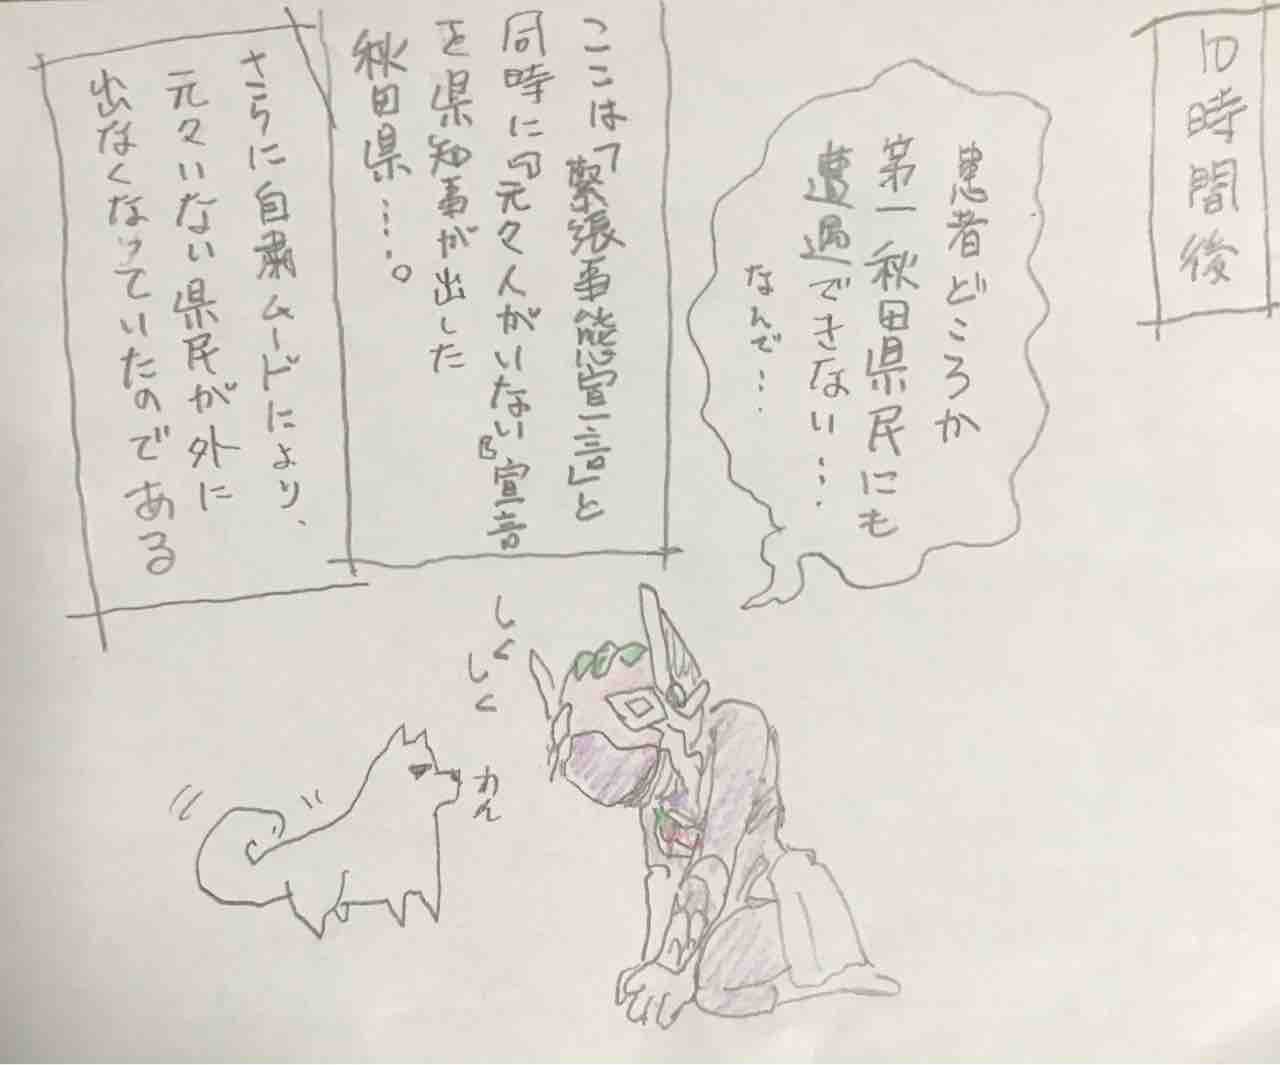 10時間後
患者どころか
第一秋田県民にも
遭遇できない…．
なんで…．
ここは「緊張事態宣言」と
同時に『元々人がいない』宣言
を県知事が出した
秋田県…。
さらに自粛ムードにより、
元々いない県民が外に
出なくなっていたのである
しく
しく
わん